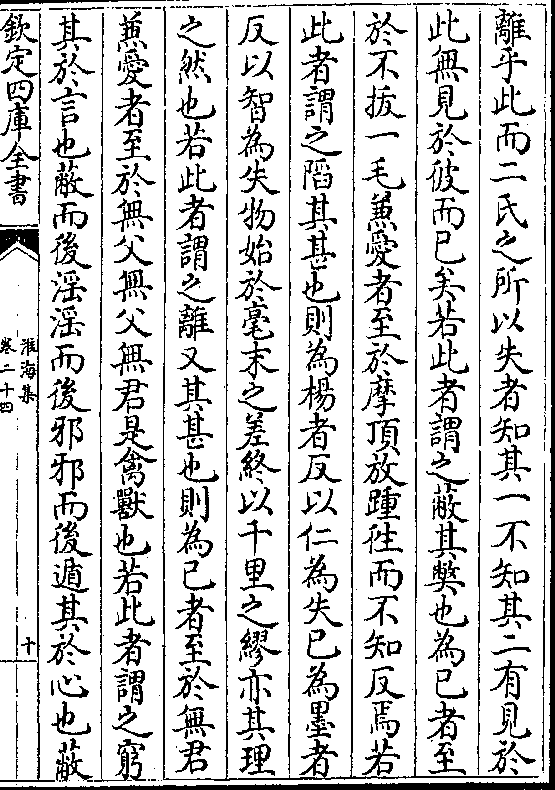 離乎此而二氏之所以失者知其一不知其二有見於
此無見於彼而已矣若此者謂之蔽其弊也為已者至
於不拔一毛兼愛者至於摩頂放踵徃而不知反焉若
此者謂之䧟其甚也則為楊者反以仁為失已為墨者
反以智為失物始於毫末之差終以千里之繆亦其理
之然也若此者謂之離又其甚也則為已者至於無君
兼愛者至於無父無父無君是禽獸也若此者謂之窮
其於言也蔽而後淫淫而後邪邪而後遁其於心也蔽
欽定四庫全書
淮海集
卷二十四
十